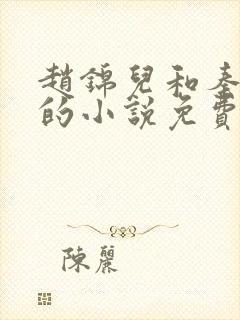 趙錦兒和秦
的小說免費
陳麗